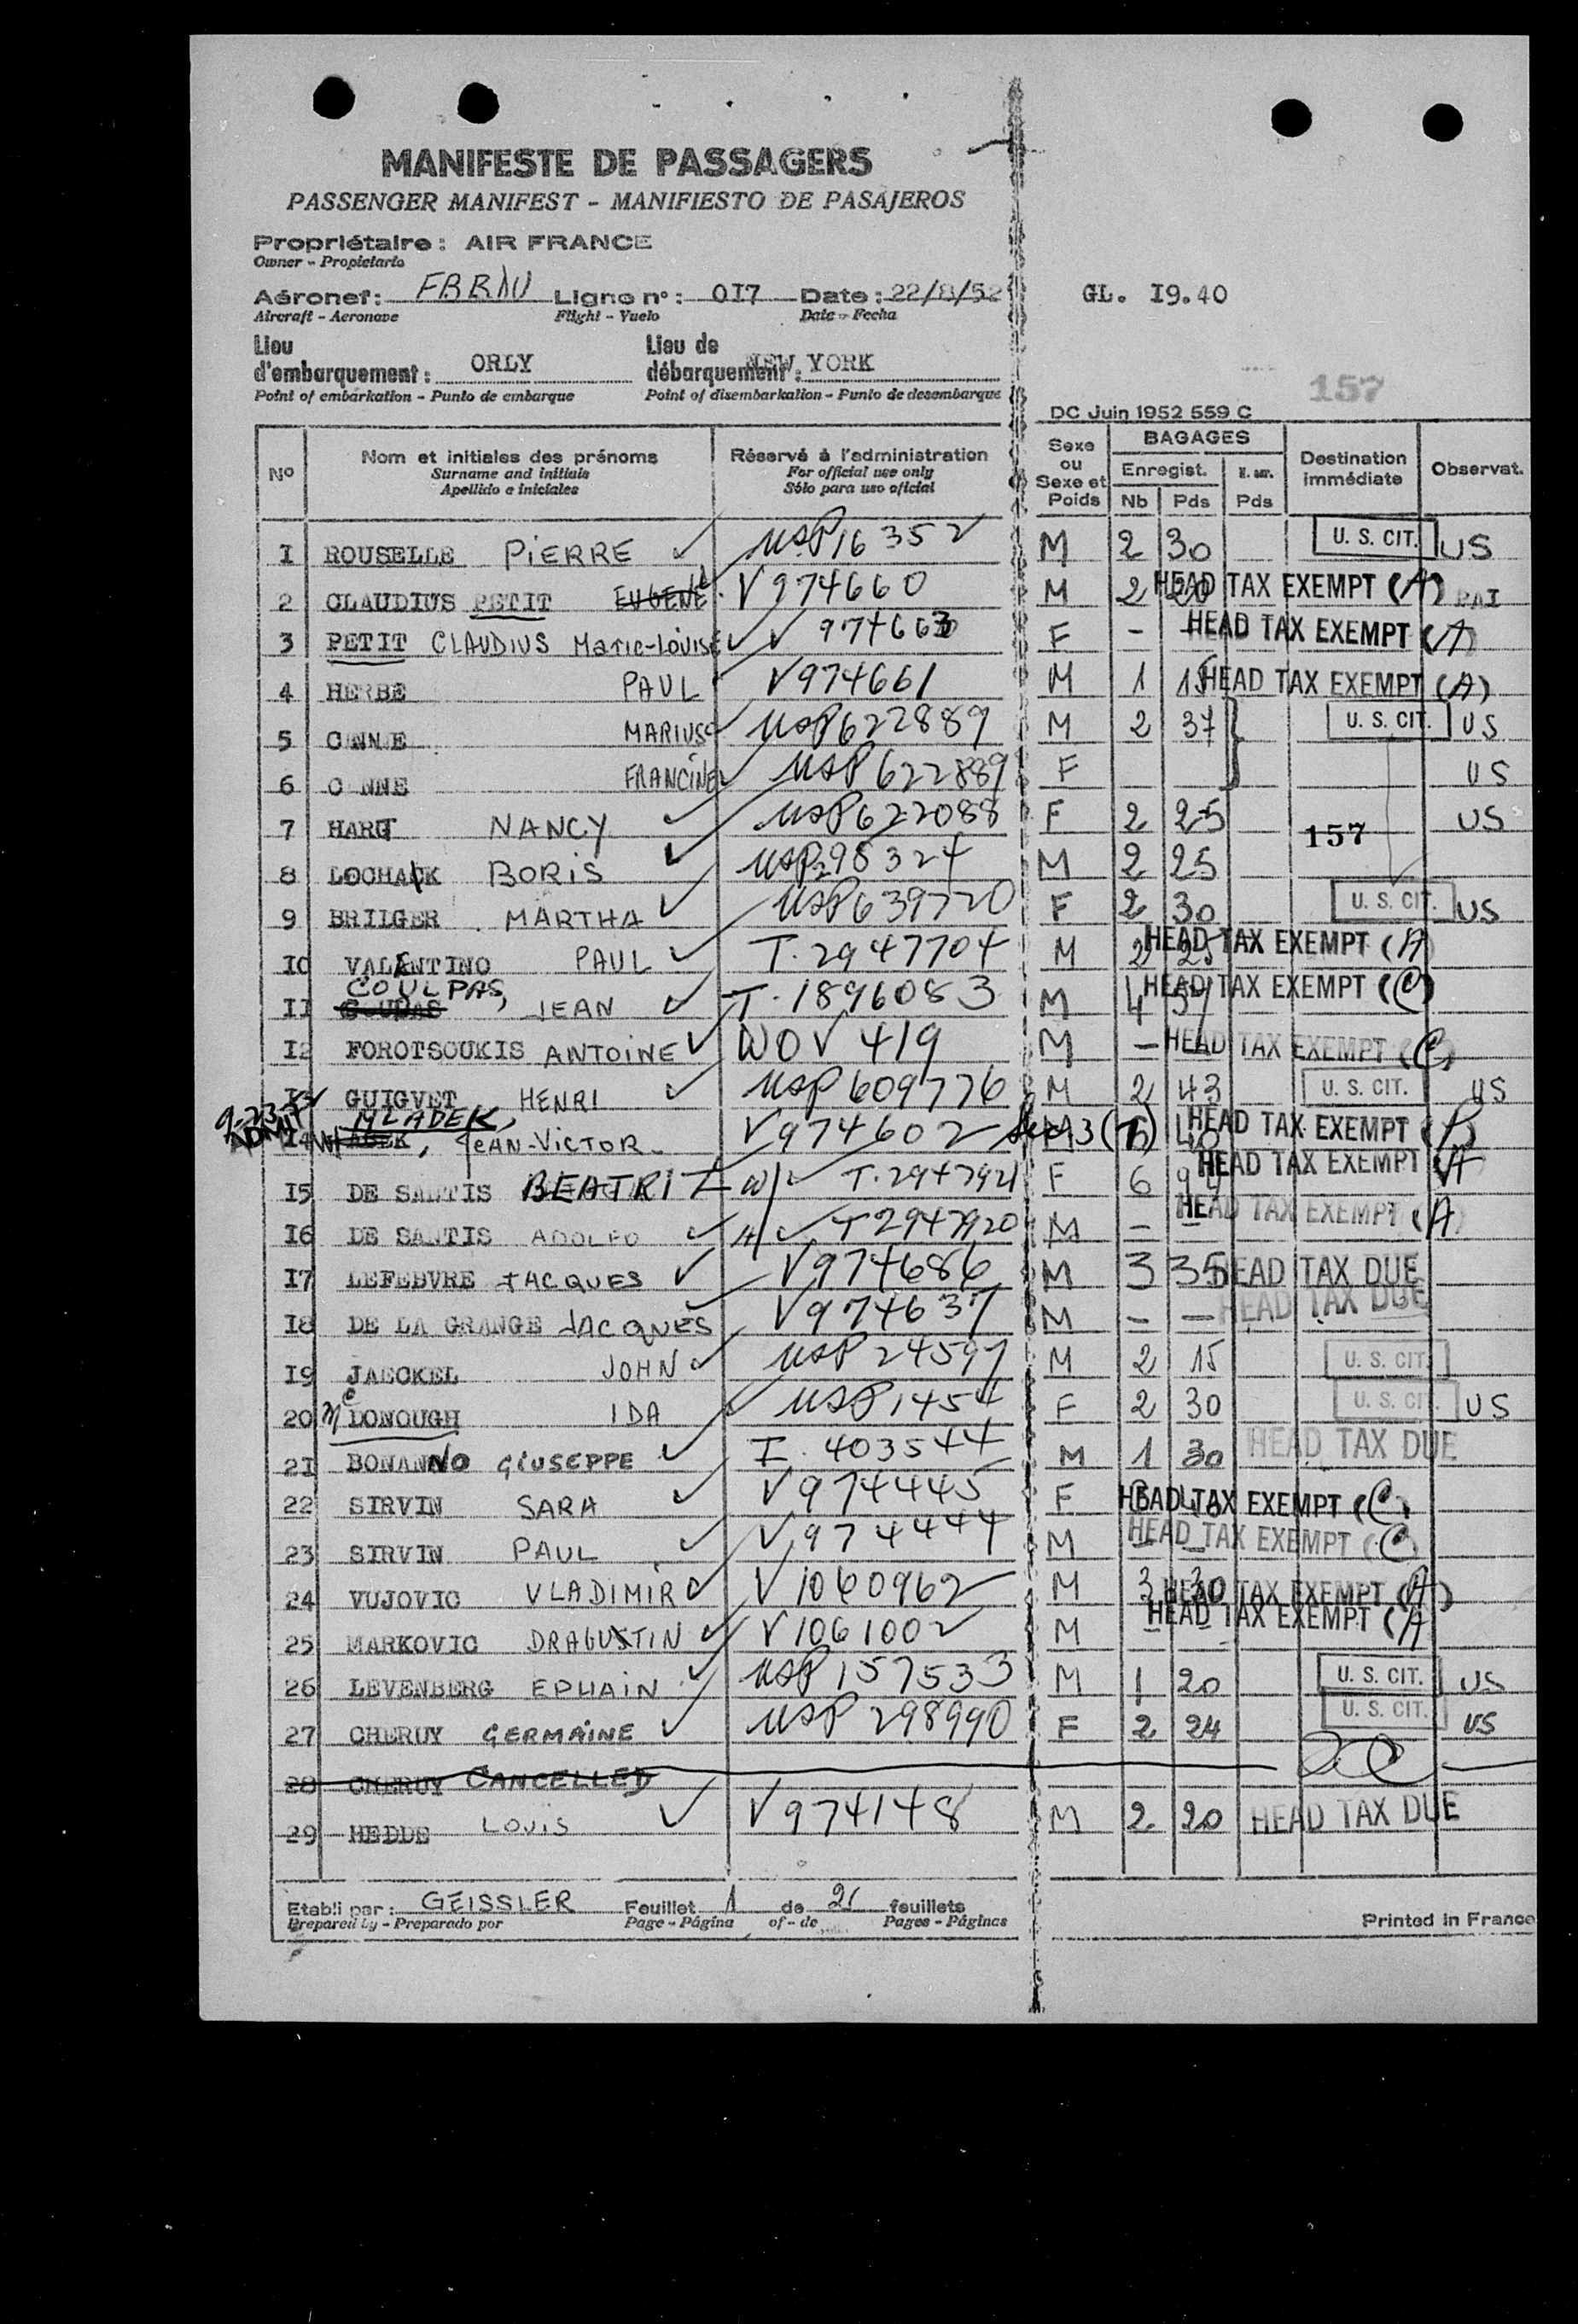 MANIFESTE DE PASSAGERS
PASSENGER MANIFEST - MANIFIESTO DE PASAJEROS
Propriétaire : AIR FRANCE
Owner - Propietario
Aéronef : Ligne n° : 0I7 Date : 22/8/52 GL. I9.40
Aircraft - Aeronave Flight - Vuelo Date - Fecha
Lieu d'embarquement : ORLY Lieu de débarquement : NEW YORK
Point of embarkation - Punto de embarque Point of disembarkation - Punto de desembarque
157
DC Juin 1952 559 C
N° Nom et initiales des prénoms Réservé à l'administration Sexe ou Sexe et Poids BAGAGES Destination immédiate Observat.
Surname and initials For official use only Enregist.
Apellido e iniciales Sólo para uso oficial Nb Pds Pds
I ROUSELLE PIERRE ✓ USP16352 M 2 30 U. S. CIT. US
2 CLAUDIUS PETIT EUGENE V974660 M 2 20 HEAD TAX EXEMPT (A)
3 PETIT CLAUDIUS Marie-Louise ✓ V 974663 F - - HEAD TAX EXEMPT (A)
4 HERBE PAUL V974661 M 1 15 HEAD TAX EXEMPT (A)
5 CANNE MARIUS ✓ USP622889 M 2 37 U. S. CIT. US
6 CANNE FRANCINE ✓ USP622889 F US
7 HART NANCY ✓ USP622088 F 2 25 157 US
8 LOCHACK BORIS ✓ USP298324 M 2 25
9 BRILGER MARTHA ✓ USP639720 F 2 30 U. S. CIT. US
I0 VALENTINO PAUL ✓ T. 2947704 M 2 25 HEAD TAX EXEMPT (A)
COULPAS,
II JEAN ✓ T. 1896083 M 4 57 HEAD TAX EXEMPT (C)
I2 FOROTSOUKIS ANTOINE ✓ WOV 419 M - HEAD TAX EXEMPT (C)
I3 GUIGVET HENRI ✓ USP 609776 M 2 43 U. S. CIT. US
MLADEK,
ADMIT I4 JEAN-VICTOR V974602 HEAD TAX EXEMPT
I5 DE SANTIS BEATRIZ W/ ✓ T. 2947921 F 6 94 HEAD TAX EXEMPT (A)
I6 DE SANTIS ADOLFO ✓ H/ ✓ T2947920 M - - HEAD TAX EXEMPT (A)
I7 LEFEBVRE JACQUES ✓ V974686 M 3 35 HEAD TAX DUE
I8 DE LA GRANGE JACQUES ✓ V974637 M - - HEAD TAX DUE
I9 JAECKEL JOHN ✓ USP 24597 M 2 15 U. S. CIT.
20 Mc DONOUGH IDA ✓ USP1454 F 2 30 U. S. CIT. US
2I BONANNO GIUSEPPE ✓ I. 403544 M 1 30 HEAD TAX DUE
22 SIRVIN SARA ✓ V974445 F HEAD TAX EXEMPT (C)
23 SIRVIN PAUL ✓ V974444 M - - HEAD TAX EXEMPT (C)
24 VUJOVIC VLADIMIR ✓ V1060962 M 3 30 HEAD TAX EXEMPT (A)
25 MARKOVIC DRAGUSTIN ✓ V1061002 M - - HEAD TAX EXEMPT (A
26 LEVENBERG EPHAIN ✓ USP157533 M 1 20 U. S. CIT. US
27 CHERUY GERMAINE ✓ USP 298990 F 2 24 U. S. CIT. US
28 CHERUY CANCELLED
29 HEDDE LOUIS ✓ V974148 M 2 20 HEAD TAX DUE
Etabli par : GEISSLER Feuillet 1 de feuillets
Prepared by - Preparado por Page - Página of - de Pages - Páginas Printed in France